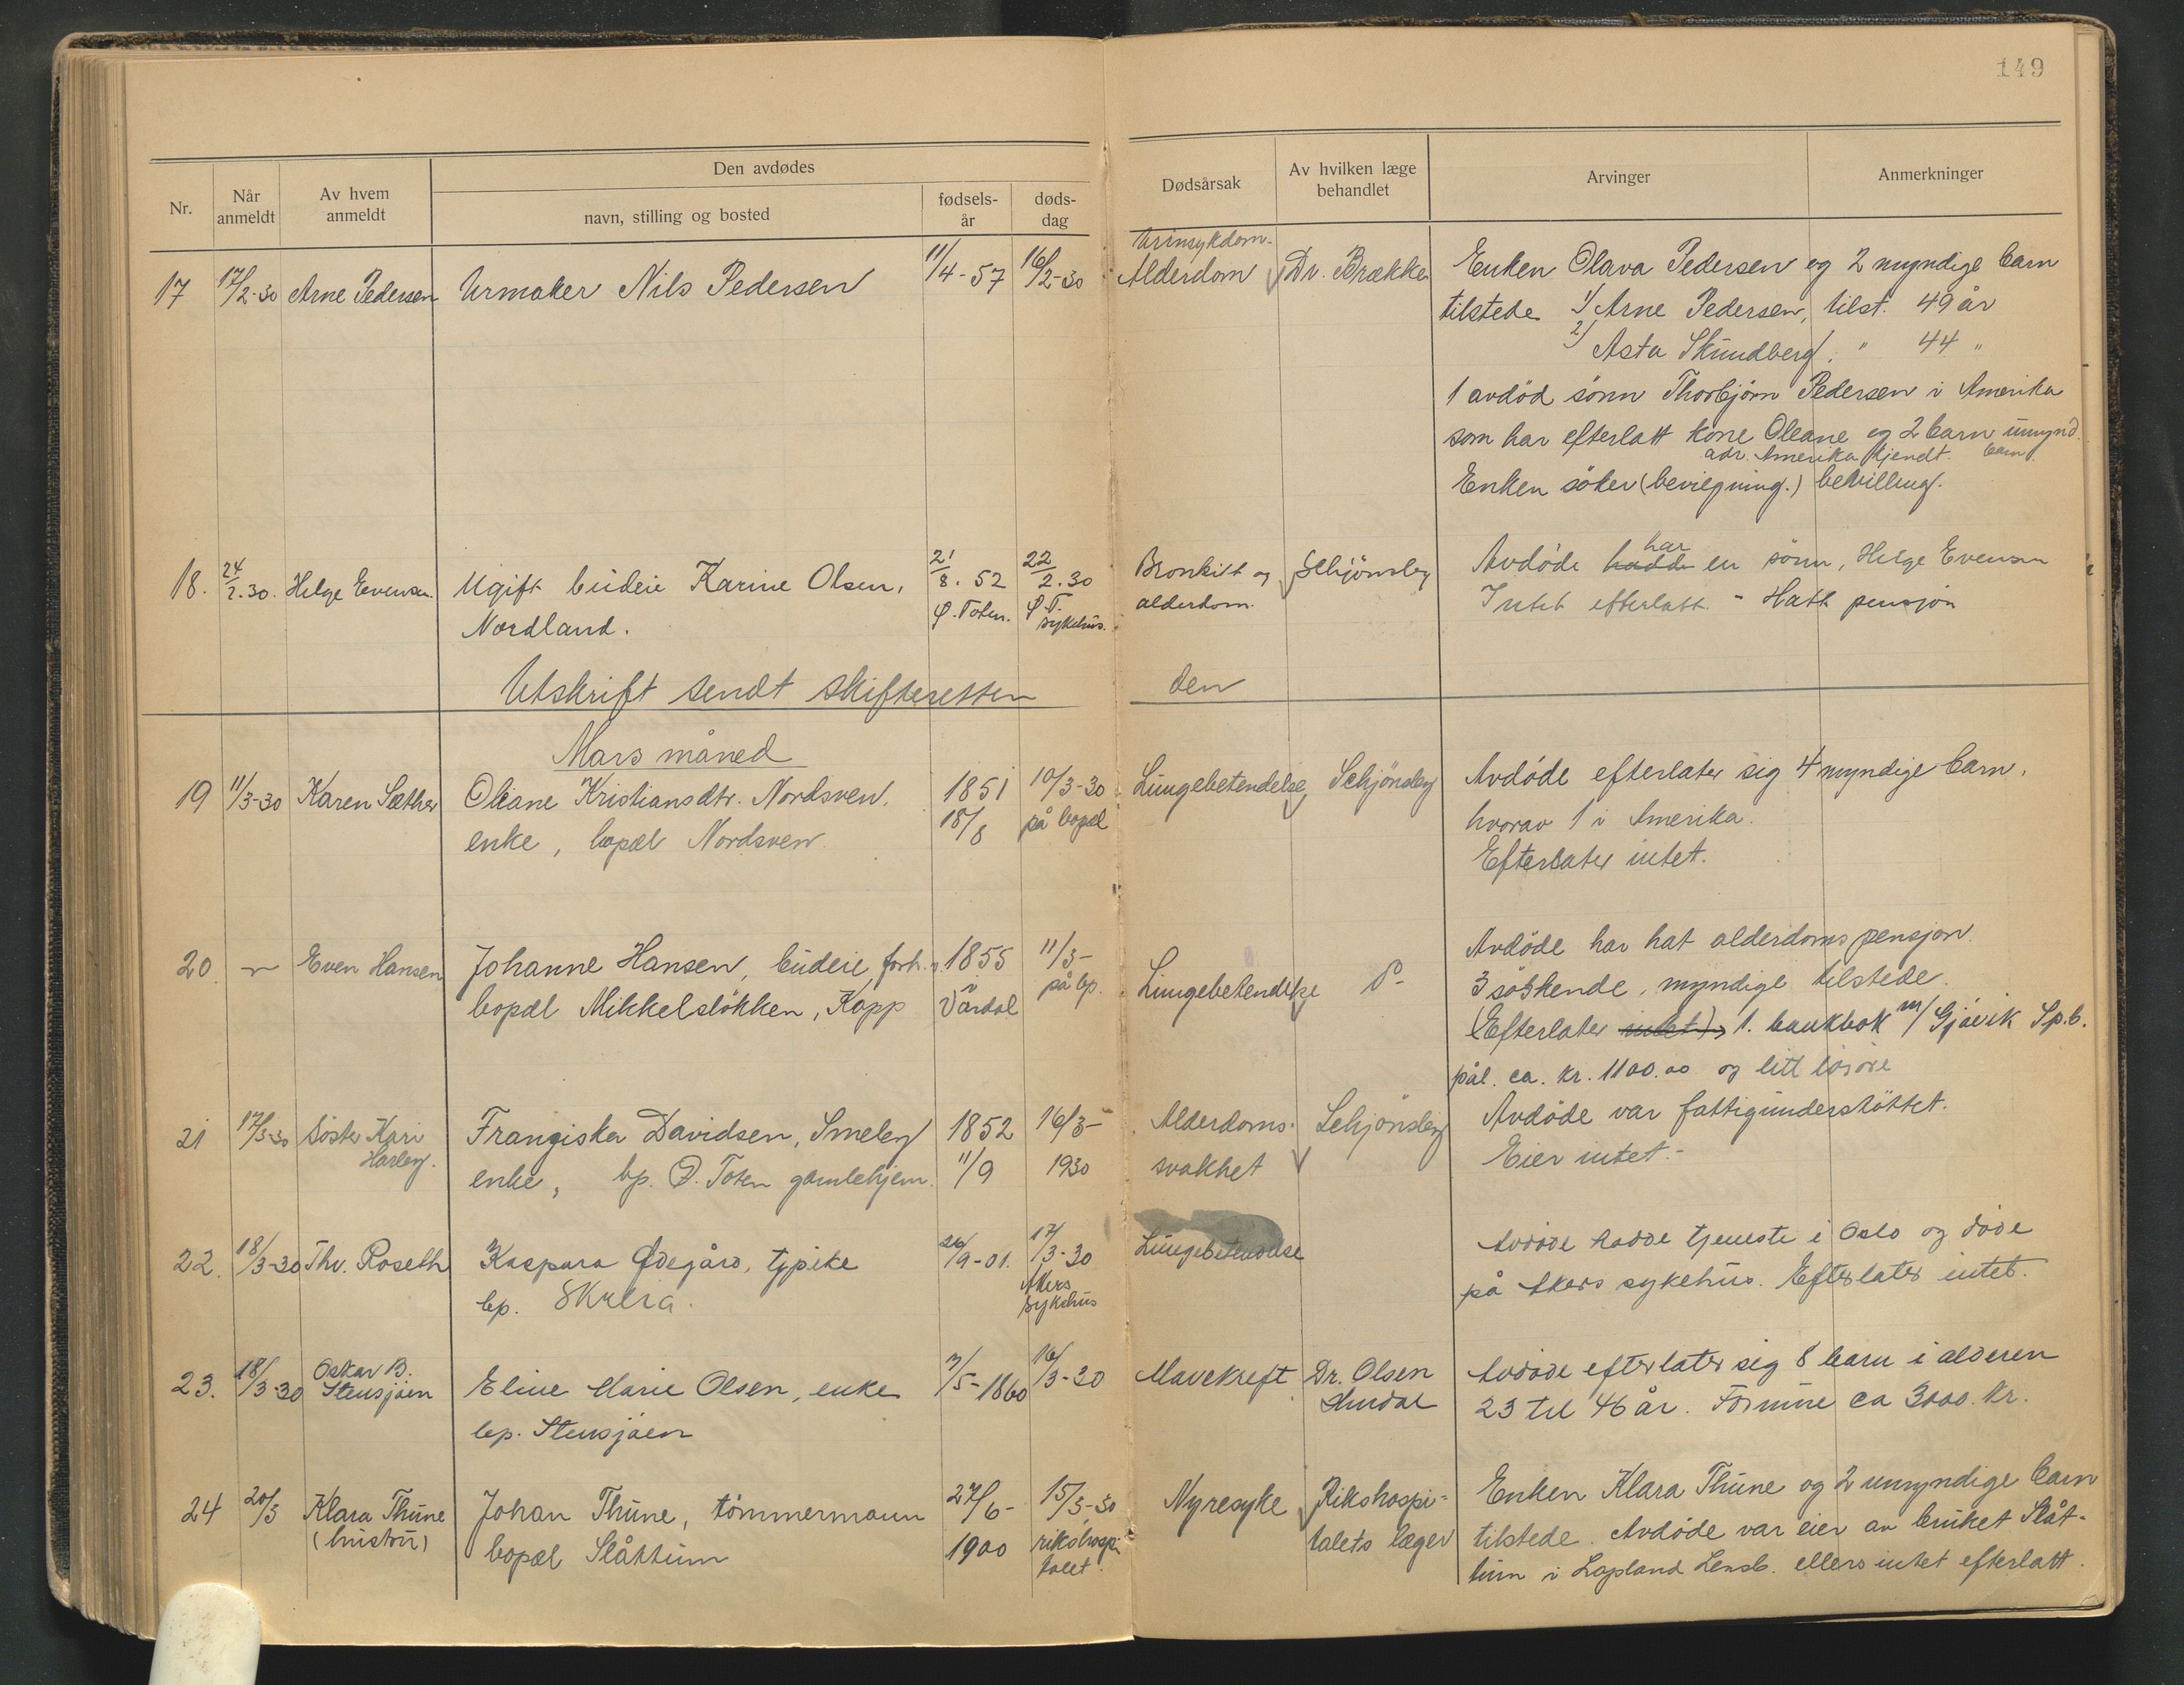 149
Nr.
Når anmeldt
Av hvem anmeldt
Den avdødes
navn, stilling og bosted
fødsels-år
døds-dag
Dødsårsak
Av hvilken læge behandlet
Arvinger
Anmerkninger
17 17/2-30 Arne Pedersen Urmaker Nils Pedersen 11/4-57 16/2-30 Urinsykdom- Alderdom Dr. Brække Enken Olava Pedersen og 2 myndige barn
tilstede 1/ Arne Pedersen, tilst. 49 år
2/ Asta Skundberg, " 44 "
1 avdöd sönn Thorbjörn Pedersen i Amerika
som har efterlatt kone Oleane og 2 barn umynd. barn
adr. Amerika kjendt.
Enken söker (bevilgning.) bevilling.
18. 24/2.30. Helge Evensen. Ugift budeie Karine Olsen, 21/8. 52 22/2.30 Bronkitt og Schjönsby Avdöde hadde har en sönn, Helge Evensen
Nordland. Ø. Toten. Ø.T. sykehus. alderdom. Intet efterlatt. - Hatt pensjon
Utskrift sendt skifteretten den
Mars måned
19 11/3-30 Karen Sæther Oleane Kristiansdtr. Nordsven, 1851 10/3-30 Lungebetendelse Schjönsby Avdöde efterlater sig 4 myndige barn,
enke, bopæl Nordsven 18/8 på bopæl hvorav 1 i Amerika.
Efterlater intet.
20 Even Hansen Johanne Hansen, budeie, forh. 1855 11/3- Avdöde har hat alderdomspensjon.
bopæl Mikkelslökken, Kapp Vardal på bp. Lungebetendelse 3 söskende, myndige tilstede.
(Efterlater intet) 1. bankbok m/ Gjövik Sp.b.
pål. ca. kr. 1100.00 og litt lösöre
21 17/3-30 Söster Kari Franziska Davidsen, Smeby 1852 16/3- Alderdoms- Schjönsby Avdöde var fattigunderstöttet.
enke, bp. Ø. Toten gamlehjem. 11/9 1930 svakhet Eier intet.-
22. 18/3-30 Thv. Roseth Kaspara Ødegård, tjpike 26/9-01. 17/3-30 Lungebetendelse Avdöde hadde tjeneste i Oslo og döde
bp. Skreia. Akers sykehus på Akers sykehus. Efterlater intet.
23. 18/3-30 Oskar B. Stensjöen Eline Marie Olsen, enke 7/5-1860 16/3-30 Mavekreft Dr. Olsen Avdöde efterlater sig 8 barn i alderen
bp. Stensjöen Hurdal 23 til 46 år. Formue ca 3000. kr.
24 20/3 Klara Thune Johan Thune, tömmermann 27/6- 15/3-30 Nyresyke Rikshospi- Enken Klara Thune og 2 umyndige barn
(hustru) bopæl Slåttum 1900 rikshospi-talet. talets læger tilstede. Avdöde var eier av bruket Slåt-
tum i Lapland Lensb. ellers intet efterlatt.